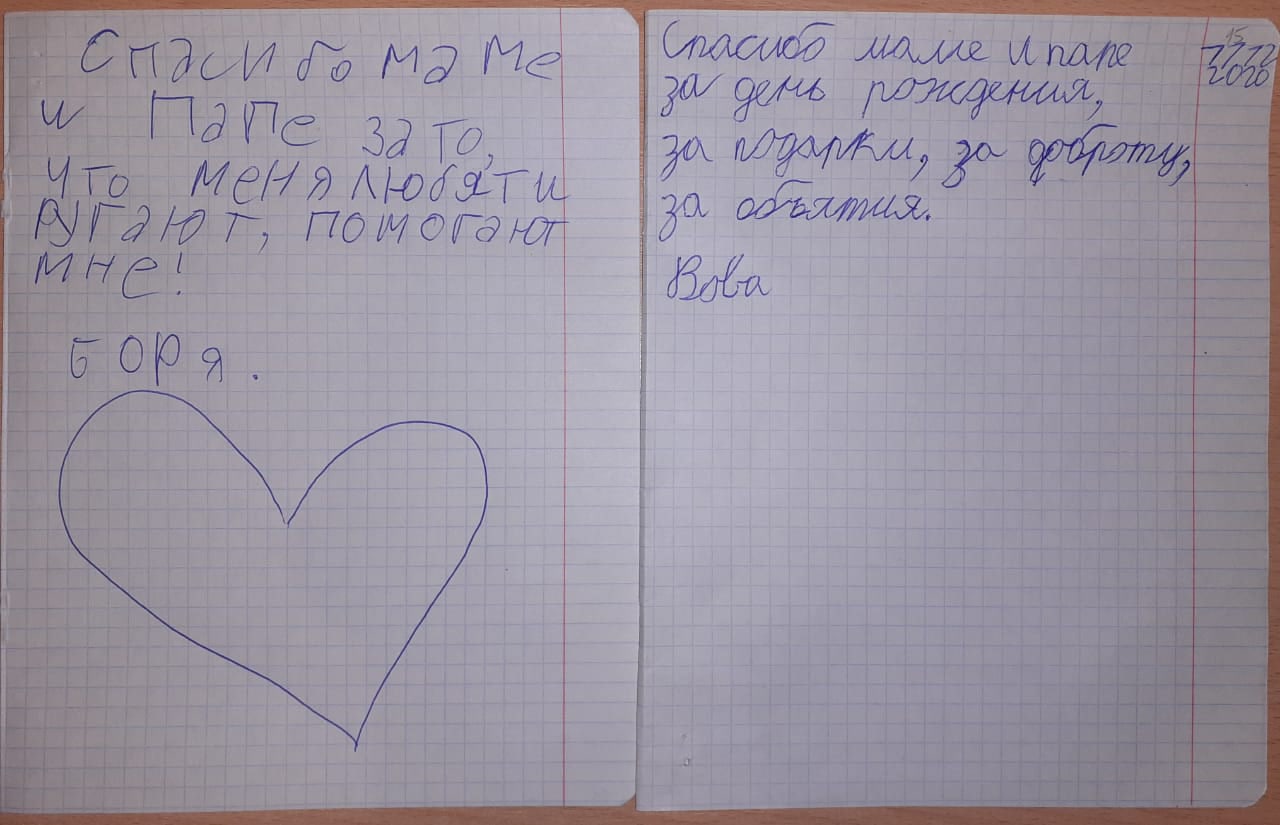 Спасибо маме
и Папе за то,
что меня любят и
ругают, помогают
мне!
Боря.
Спасиоб маме и папе
за день рождения,
за подарки, за доброту,
за объятия.
Вова
15
2020